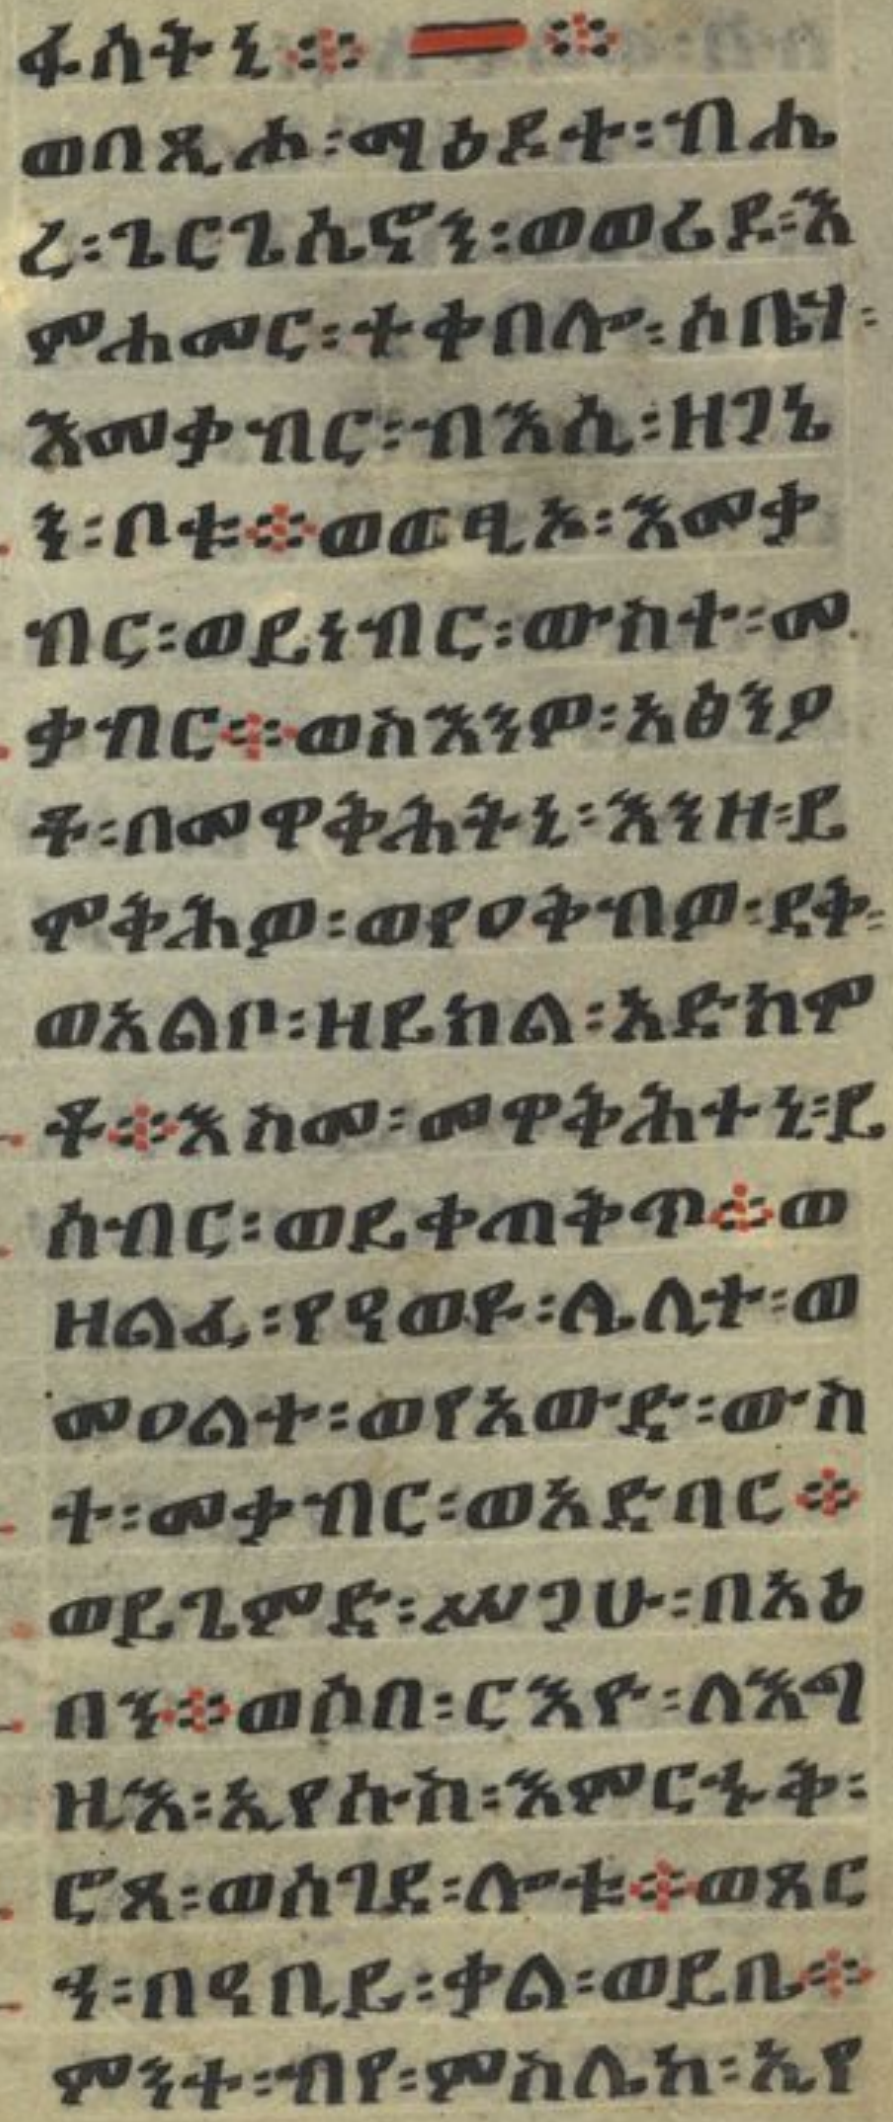 ፋሰትኒ፨ ፨
ወበጺሐ፡ማዕደተ፡ብሔ
ረ፡ጌርጌሴኖን፡ወወሪዶ፡እ
ምሐመር፡ተቀበሎ፡ሰቤሃ፡
እመቃብር፡ብእሲ፡ዘጋኔ
ን፡ቦቱ፨ወውፂኦ፡እመቃ
ብር፡ወይነብር፡ውስተ፡መ
ቃብር፨ወስእንዎ፡አፅንዖ
ቶ፡በመዋቅሕትኒ፡እንዘ፡ይ
ሞቅሕዎ፡ወየዐቅብዎ፡ደቅ፡
ወአልቦ፡ዘይክል፡አድክሞ
ቶ፨እስመ፡መዋቅሕተኒ፡ይ
ሰብር፡ወይቀጠቅጥ፨ወ
ዘልፈ፡የዓወዩ፡ሌሊተ፡ወ
መዐልተ፡ወየአውድ፡ውስ
ተ፡መቃብር፡ወአድባር፨
ወይጌምድ፡ሥጋሁ፡በእዕ
በን፨ወሶበ፡ርእዮ፡ለእግ
ዚእ፡ኢየሱስ፡እምርኁቅ፡
ሮጸ፡ወሰገደ፡ሎቱ፨ወጸር
ኀ፡በዓቢይ፡ቃል፡ወይቤ፨
ምንተ፡ብየ፡ምስሌከ፡ኢየ